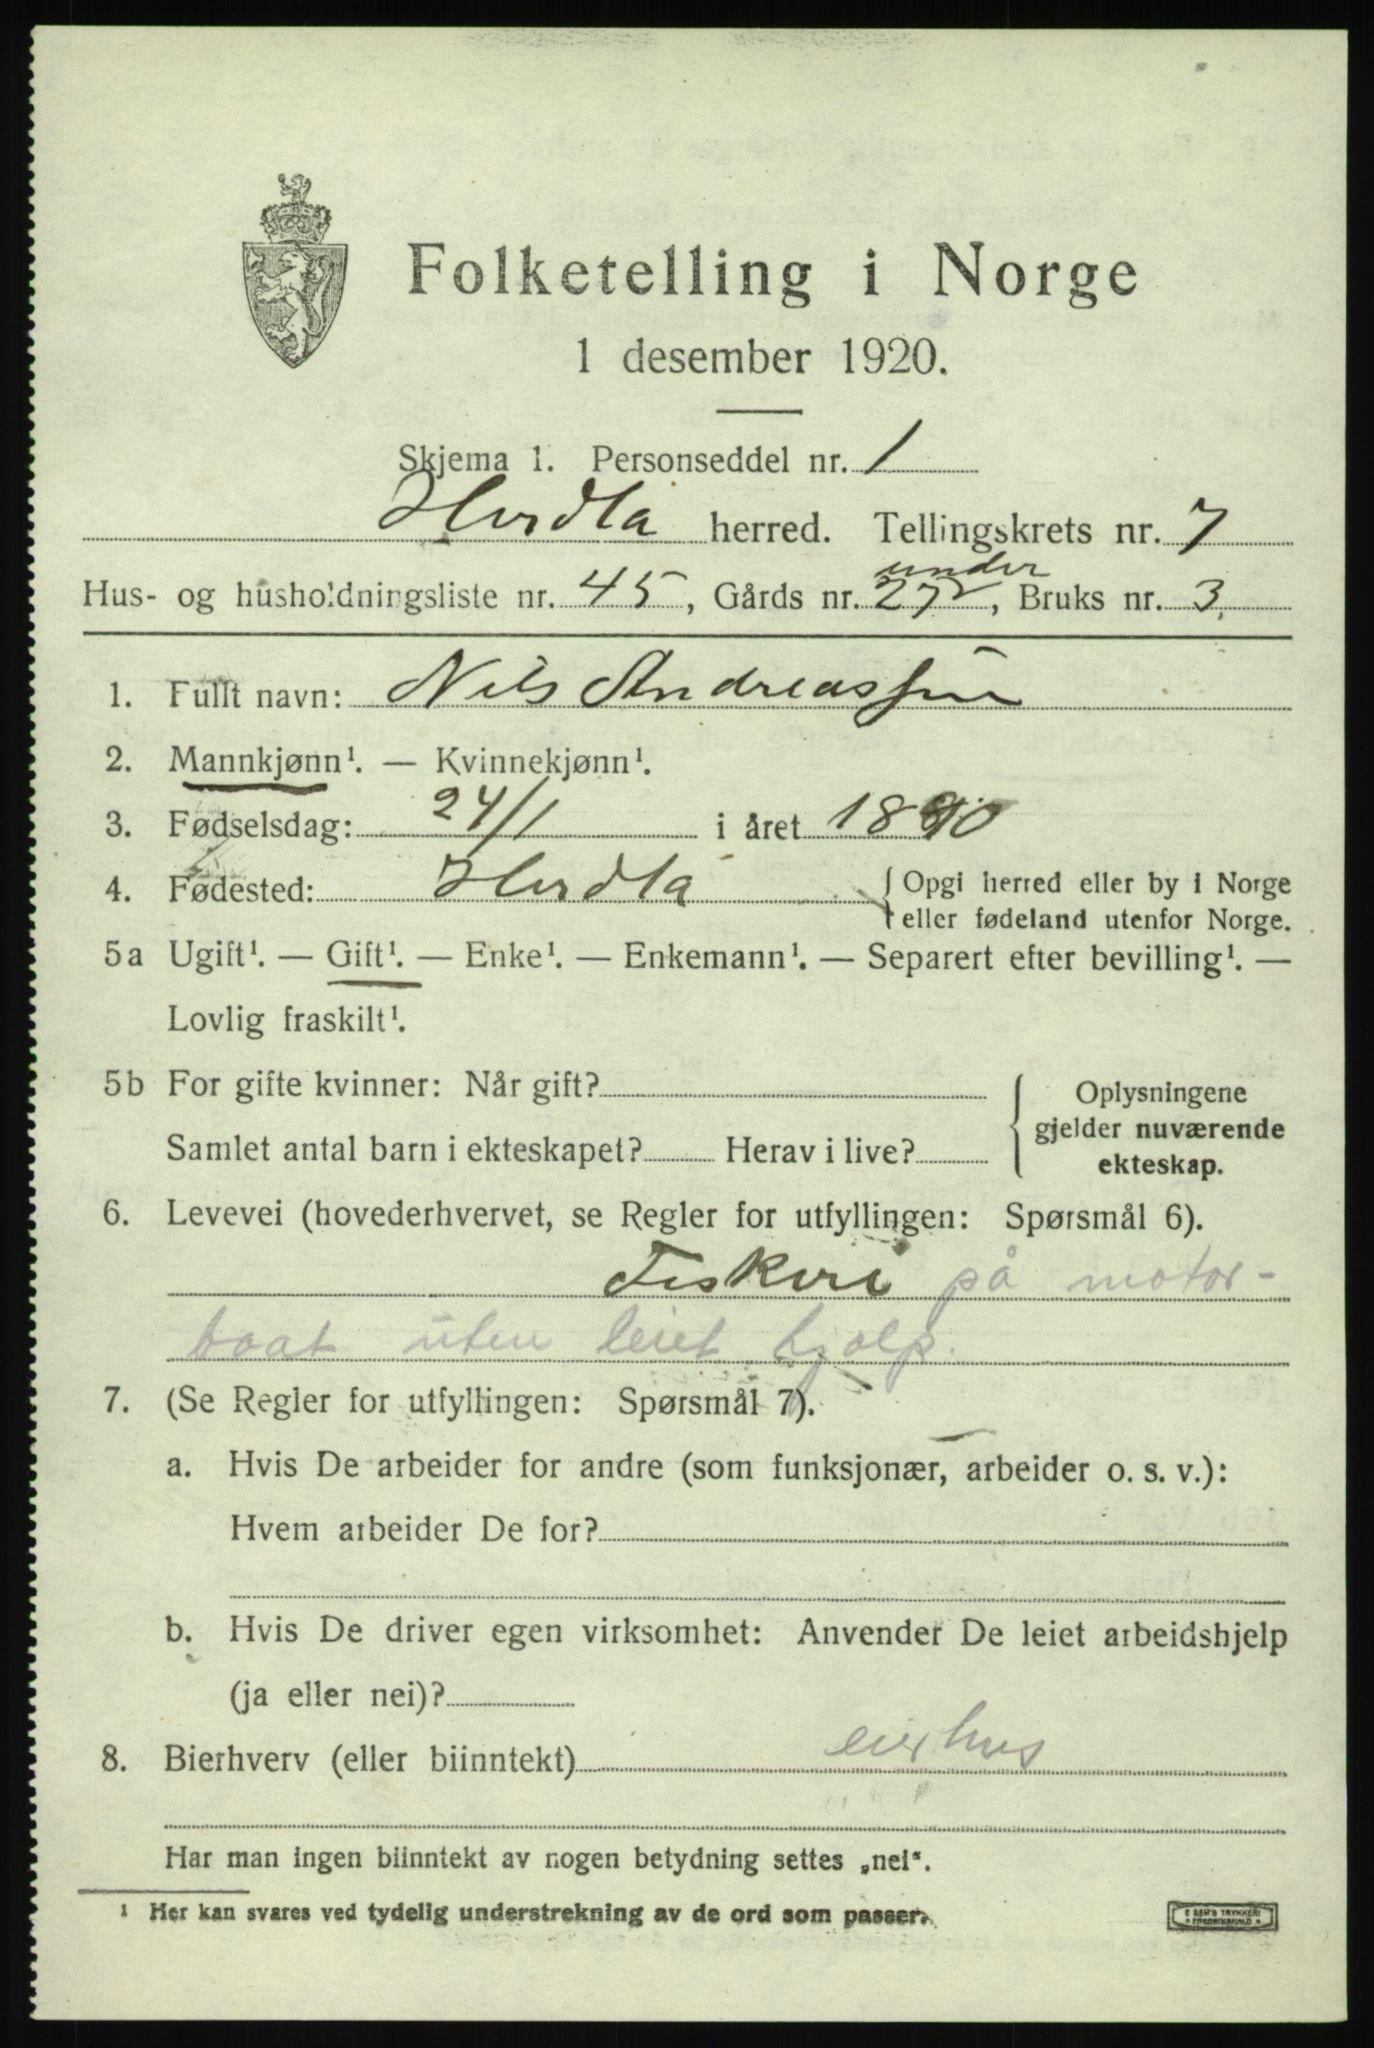 Folketelling i Norge
1 desember 1920.
Skjema 1. Personseddel nr. 1
Herdla herred. Tellingskrets nr. 7
under
Hus- og husholdningsliste nr. 45, Gårds nr. 27, Bruks nr. 3
1. Fullt navn: Nils Andreassen
2. Mannkjønn¹. — Kvinnekjønn¹.
3. Fødselsdag: 24/1 i året 1890
4. Fødested: Herdla {Opgi herred eller by i Norge
eller fødeland utenfor Norge.
5a Ugift¹. — Gift¹. — Enke¹. — Enkemann¹. — Separert efter bevilling¹. —
Lovlig fraskilt¹.
5b For gifte kvinner: Når gift? { Oplysningene
gjelder nuværende
Samlet antal barn i ekteskapet? Herav i live?
ekteskap.
6. Levevei (hovederhvervet, se Regler for utfyllingen: Spørsmål 6).
Fiskeri på motor-
baat uten leiet hjelp.
7. (Se Regler for utfyllingen: Spørsmål 7).
a. Hvis De arbeider for andre (som funksjonær, arbeider o. s. v.):
Hvem arbeider De for?
b. Hvis De driver egen virksomhet: Anvender De leiet arbeidshjelp
(ja eller nei)?
8. Bierhverv (eller biinntekt) eier hus
Har man ingen biinntekt av nogen betydning settes „nei“.
¹ Her kan svares ved tydelig understrekning av de ord som passer.
E SEM'S TRYKKERI
FREDRIKSHALD